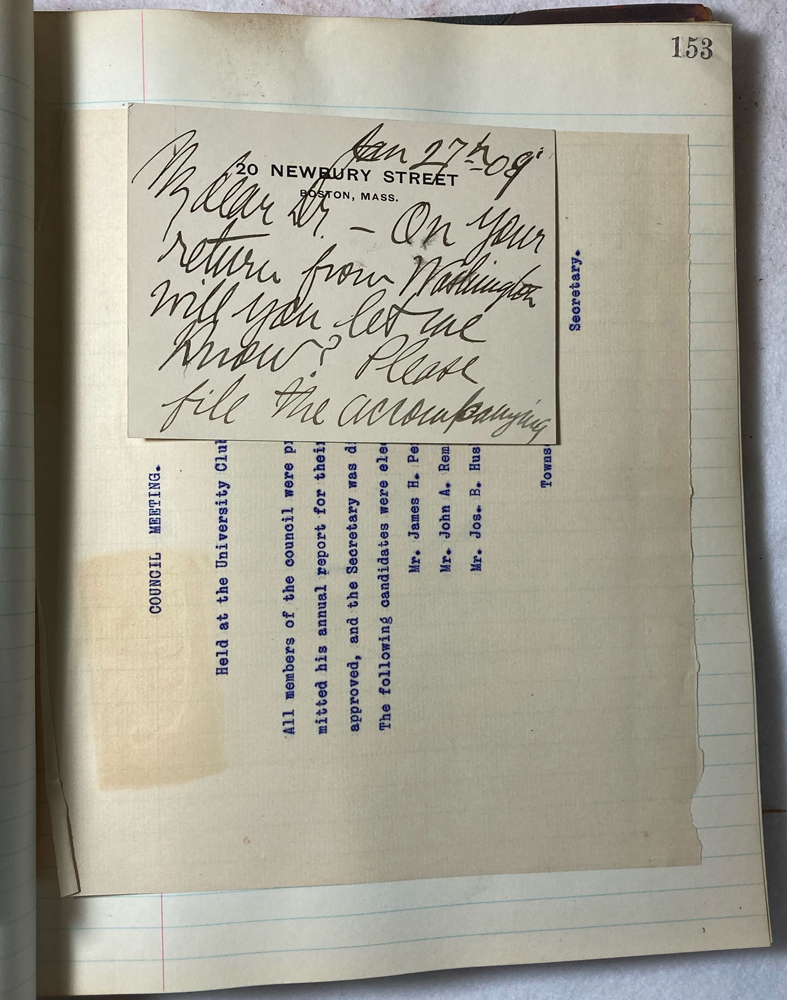 153
Jan 27th 09
20 NEWBURY STREET
BOSTON, MASS.
My dear Dr. – On your
return from Washington
will you let me
know? Please
file the accompanying
COUNCIL MEETING.
Held at the University Clu
All members of the council were p
mitted his annual report for thei
approved, and the Secretary was d
The following candidates were ele
Mr. James H. Pe
Mr. John A. Rem
Mr. Jos. B. Hus
Towns
Secretary.